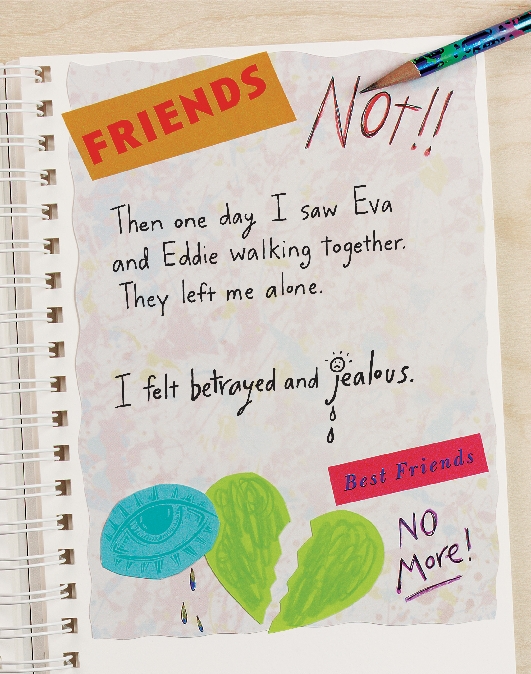 FRIENDS NOt!!
Then one day I saw Eva
and Eddie walking together.
They left me alone.
I felt betrayed and jealous.
Best Friends
NO
More!